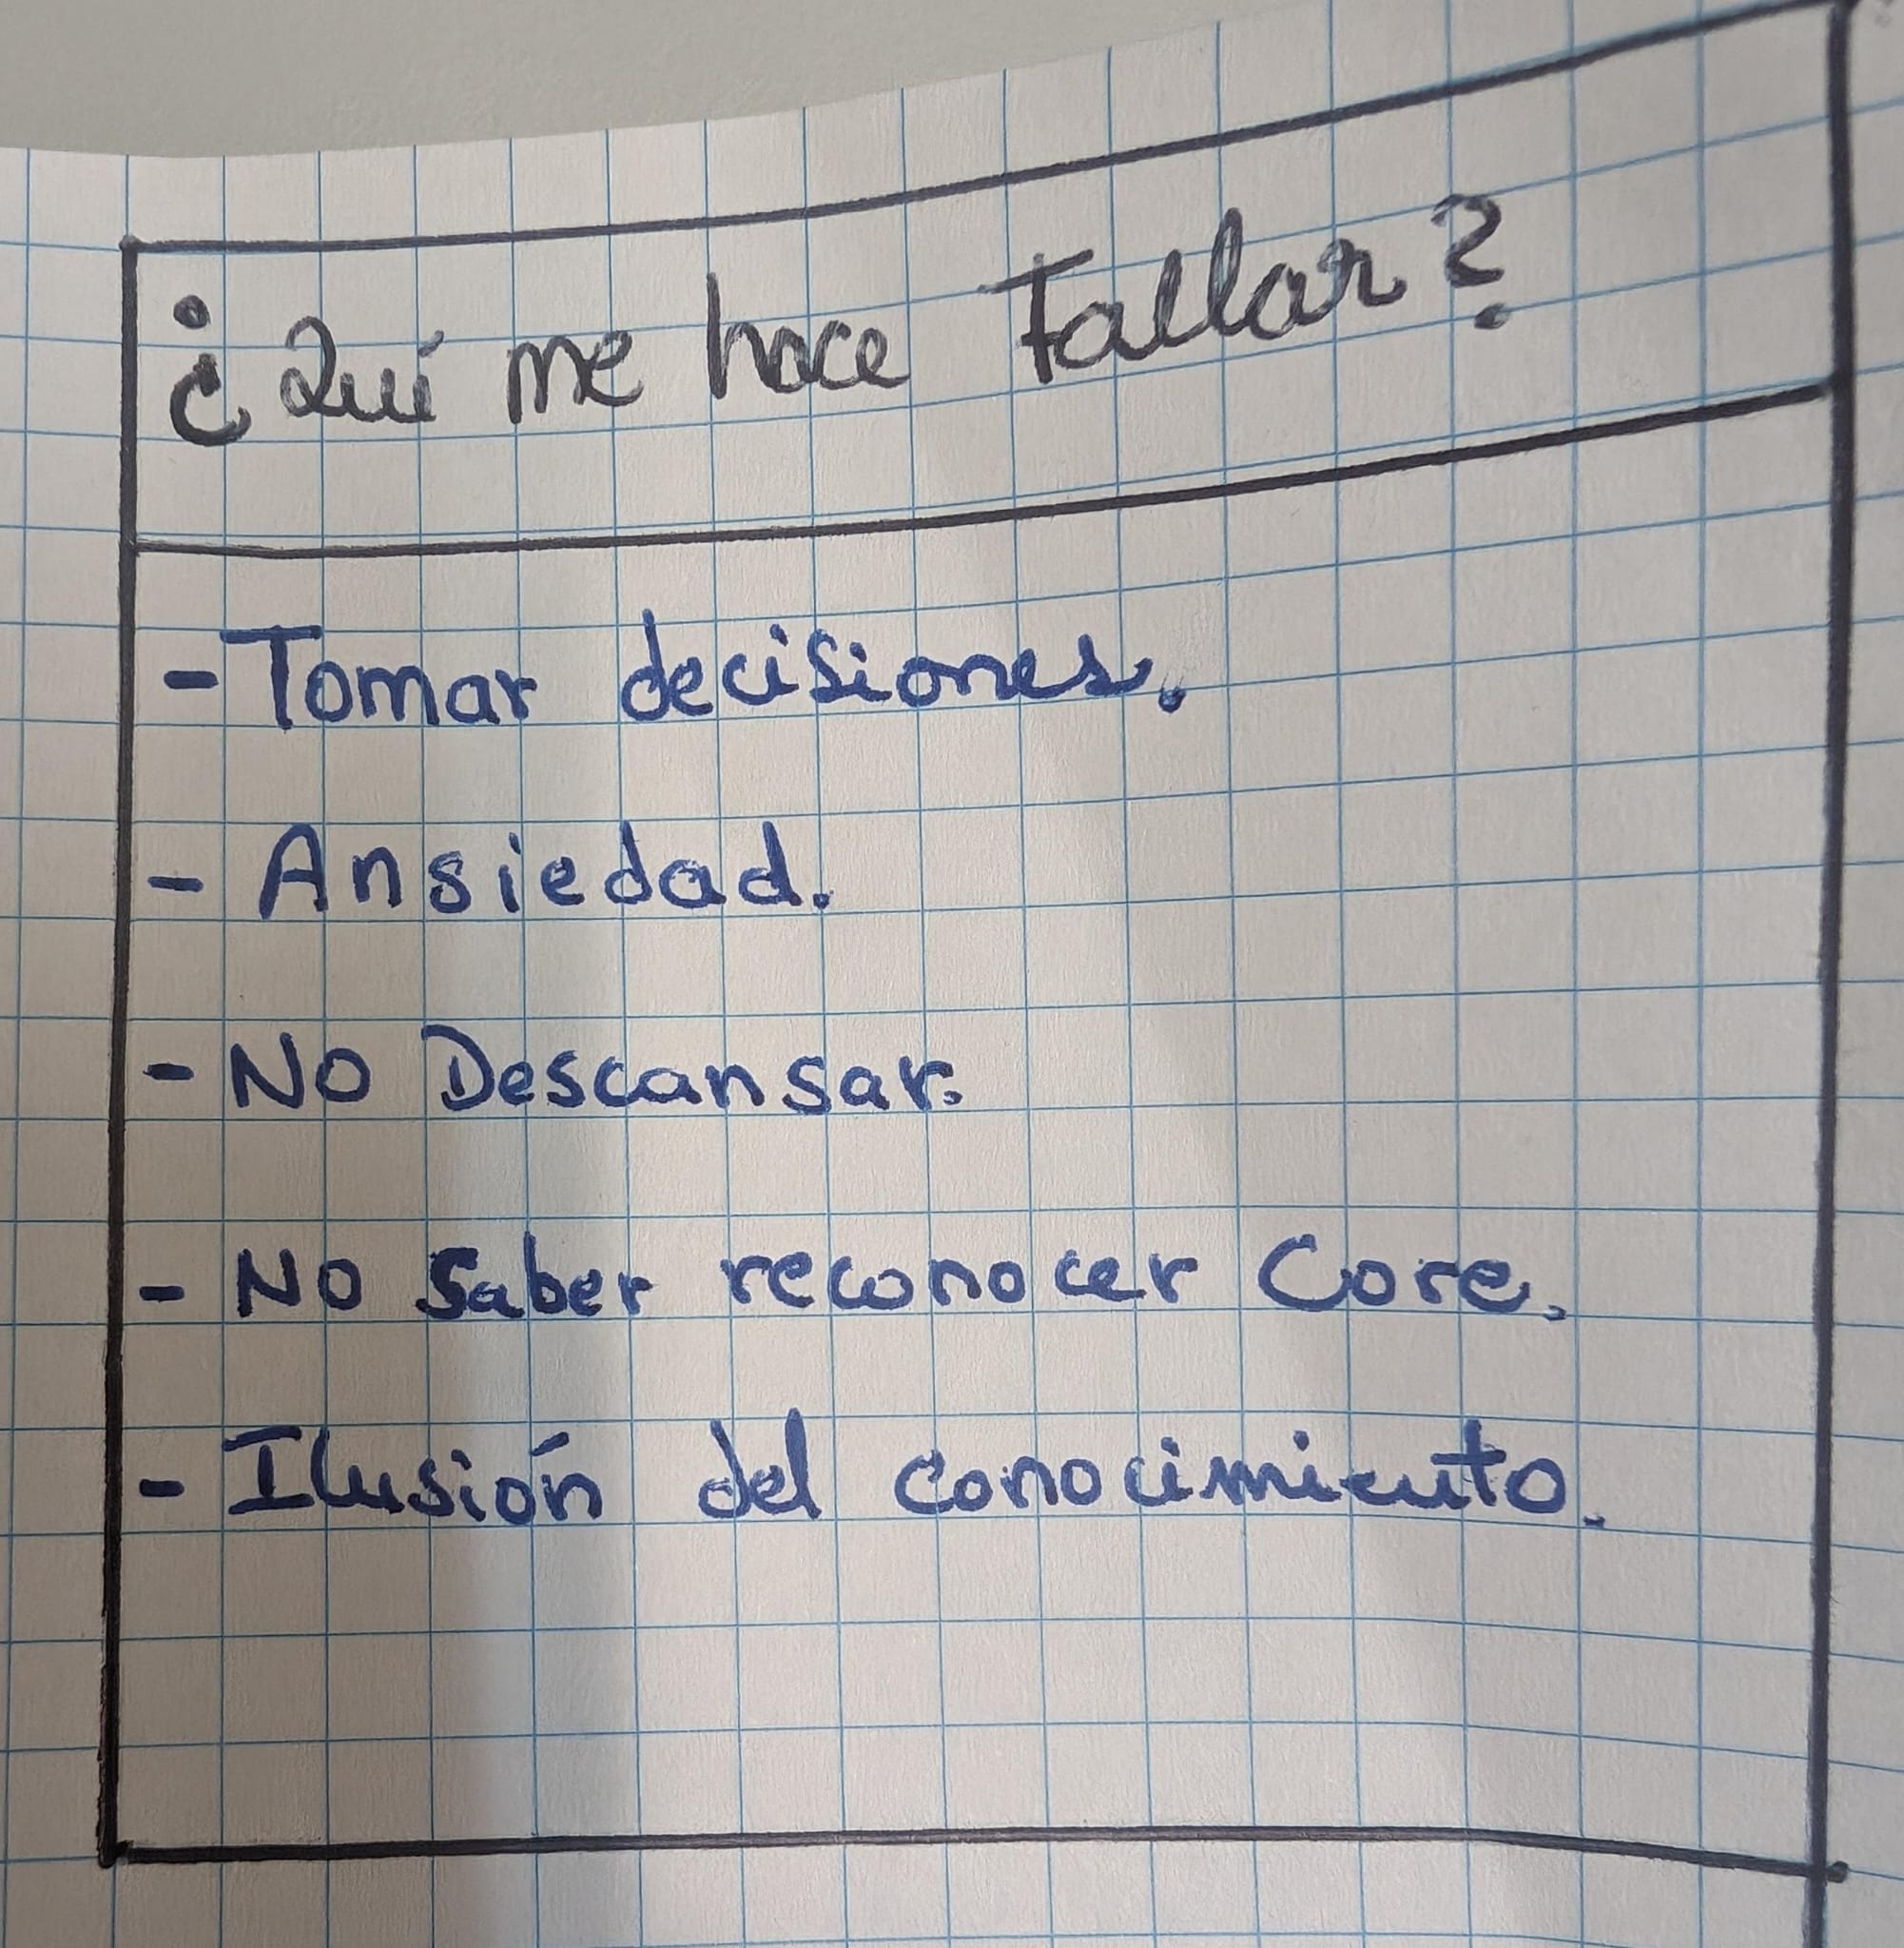 ¿Qué me hace Fallar?
- Tomar decisiones.
- Ansiedad.
- No Descansar.
- No Saber reconocer Core.
- Ilusión del conocimiento.